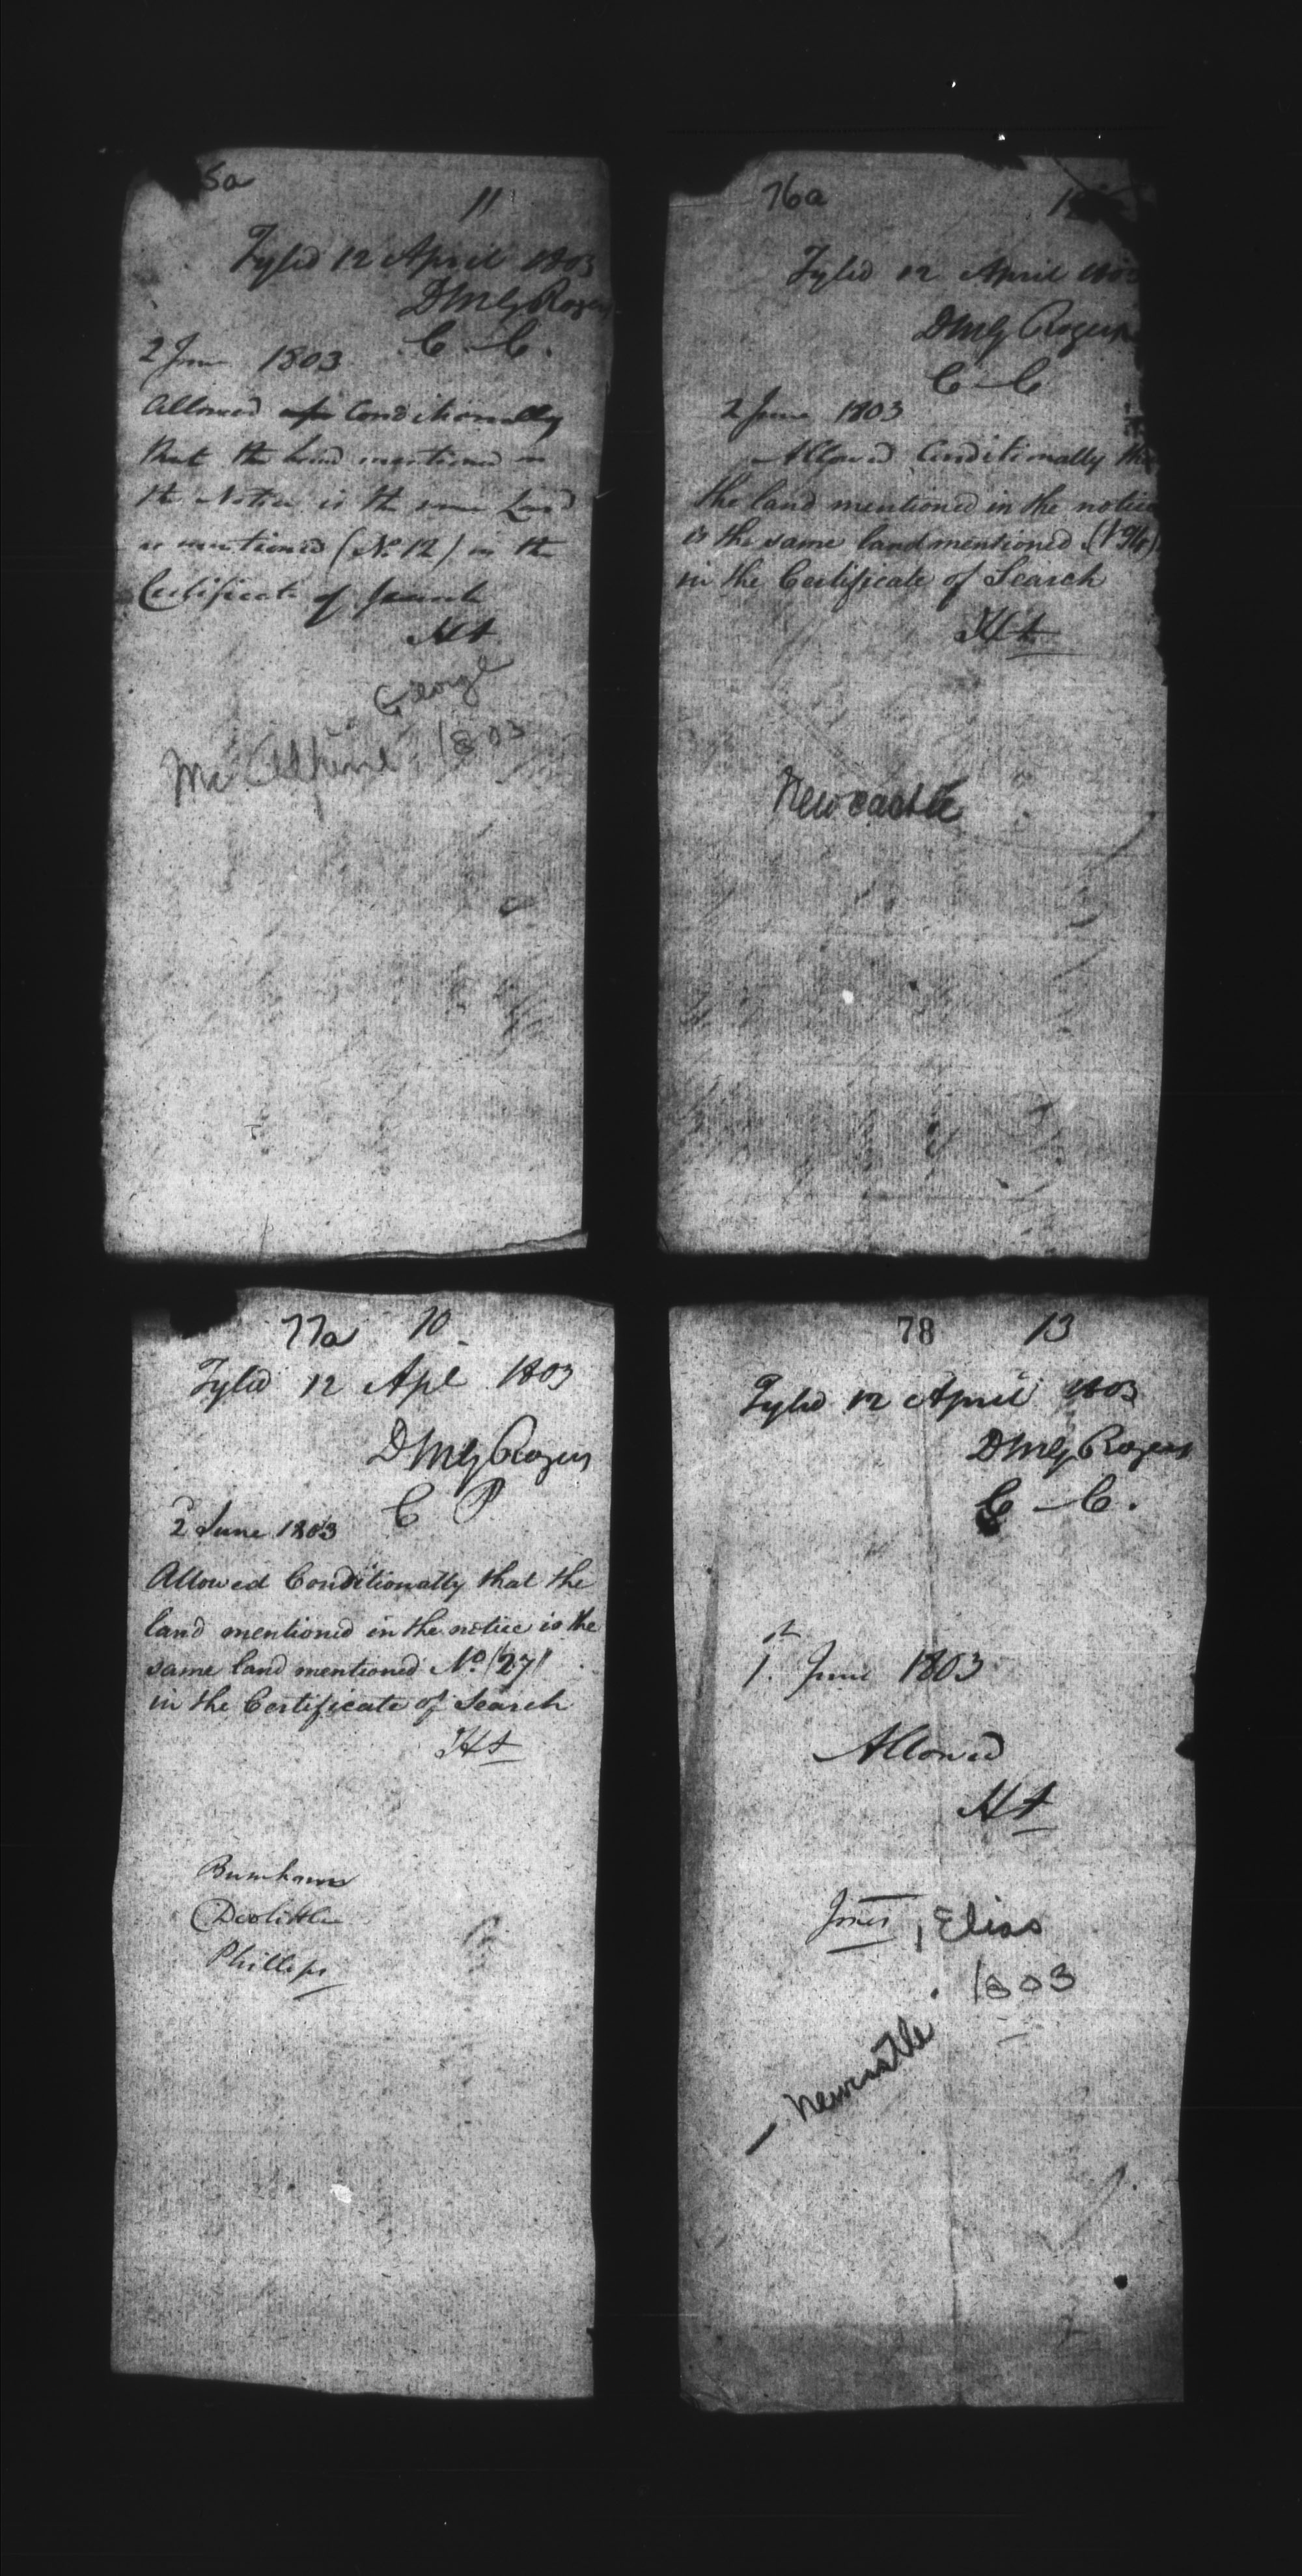 5a
11
Fyled 12 April 1803
DMG Rogers
C. C.
2 June 1803
Allowed Conditionally
that the land mentioned in
the Notice is the same Land
as mentioned (No. 12) in the
Certificate of Search
George
Mc Alpine 1803
76a
Fyled 12 April 1803
DMG Rogers
C-C
2 June 1803
Allowed Conditionally that
the land mentioned in the notice
is the same land mentioned
in the Certificate of Search
Newcastle
77a 10
Fyled 12 Apl 1803
DMG Rogers
C P
2 June 1803
Allowed Conditionally that the
land mentioned in the notice is the
same land mentioned No. (27)
in the Certificate of Search
Burnham
Doolittle
Phillips
78 13
Fyled 12 April 1803
DMG Rogers
C-C.
1st June 1803
Allowed
Jones, Elias
1803
Newcastle